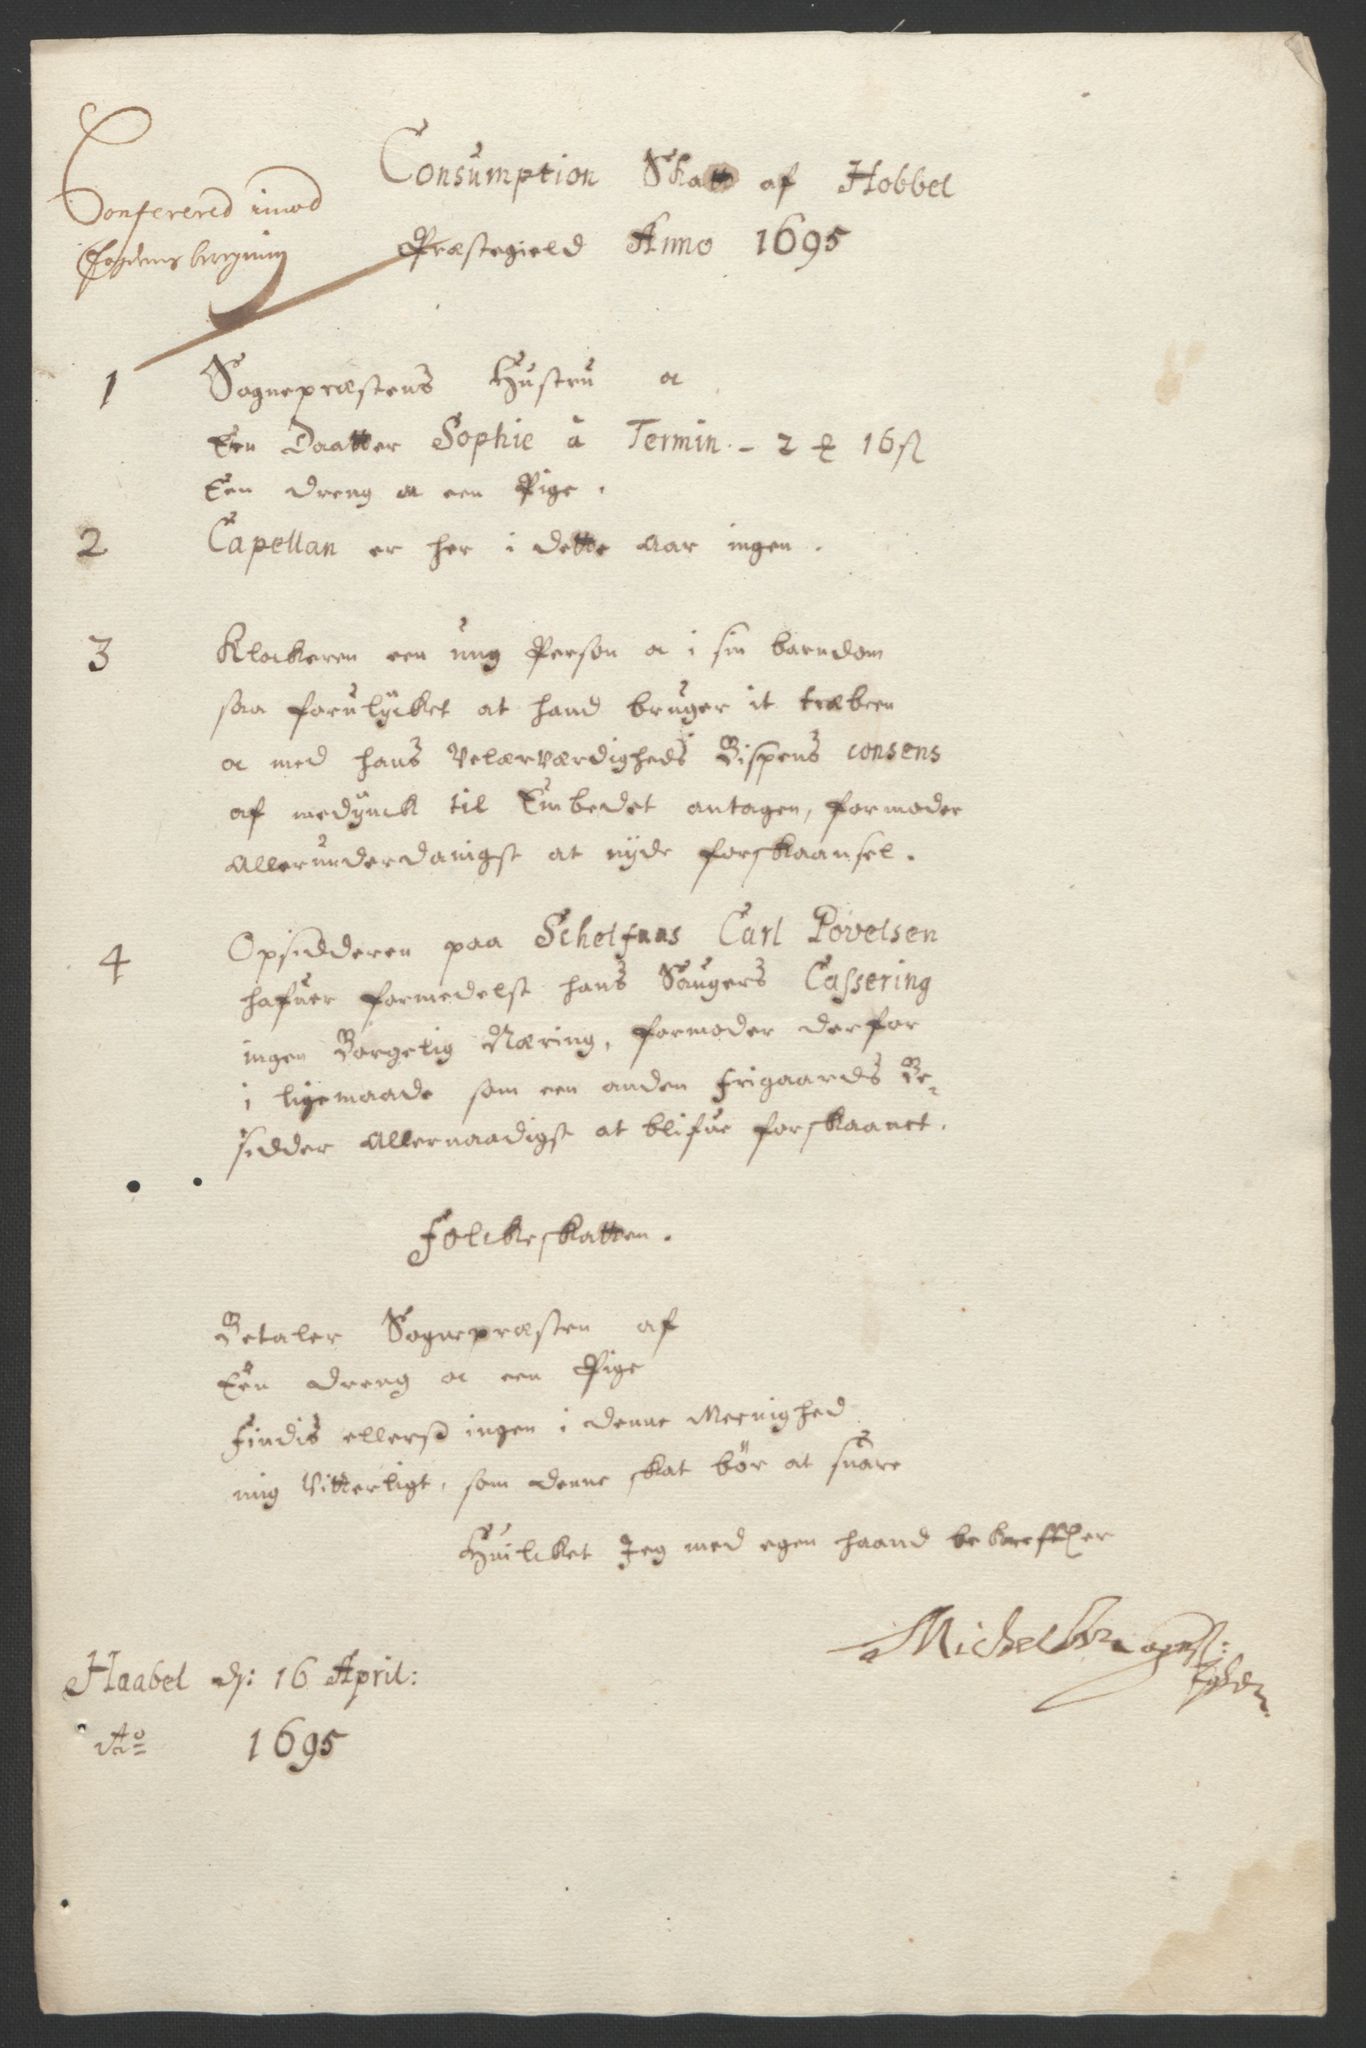 Confererd imod
Fogdens beregning
Consumption Skatt af Hobbel
Præstegield Anno 1695
1 Sognepræstens Hustru oc
Een Daatter Sophie à Termin - 2 16 ß
Een dreng oc een Pige.
2 Capellan er her i dette Aar ingen.
3 Klockeren een ung Person oc i sin barndom
saa forulÿcket at hand bruger it træbeen
oc med hans Velærværdigheds Bispens consens
af medÿnck til Embedet antagen, formoder
Allerunderdanigst at nÿde forskaansel.
4 Opsidderen paa Carl Povelsen
hafuer formedelst hans Saugers Cassering
ingen Borgelig Næring, formoder derfor
i ligemaade som een anden Frigaards Be-
sidder Allernaadigst at blifue forskaanet.
Folckeskatten.
Betaler Sognepræsten af
Een dreng oc een Pige
Findis ellers ingen i denne Meenighed
mig Vitterligt, som denne skat bör at suare
Huilcket Jeg med egen haand bekreffter
Michel
Haabel d: 16 April:
Ao 1695